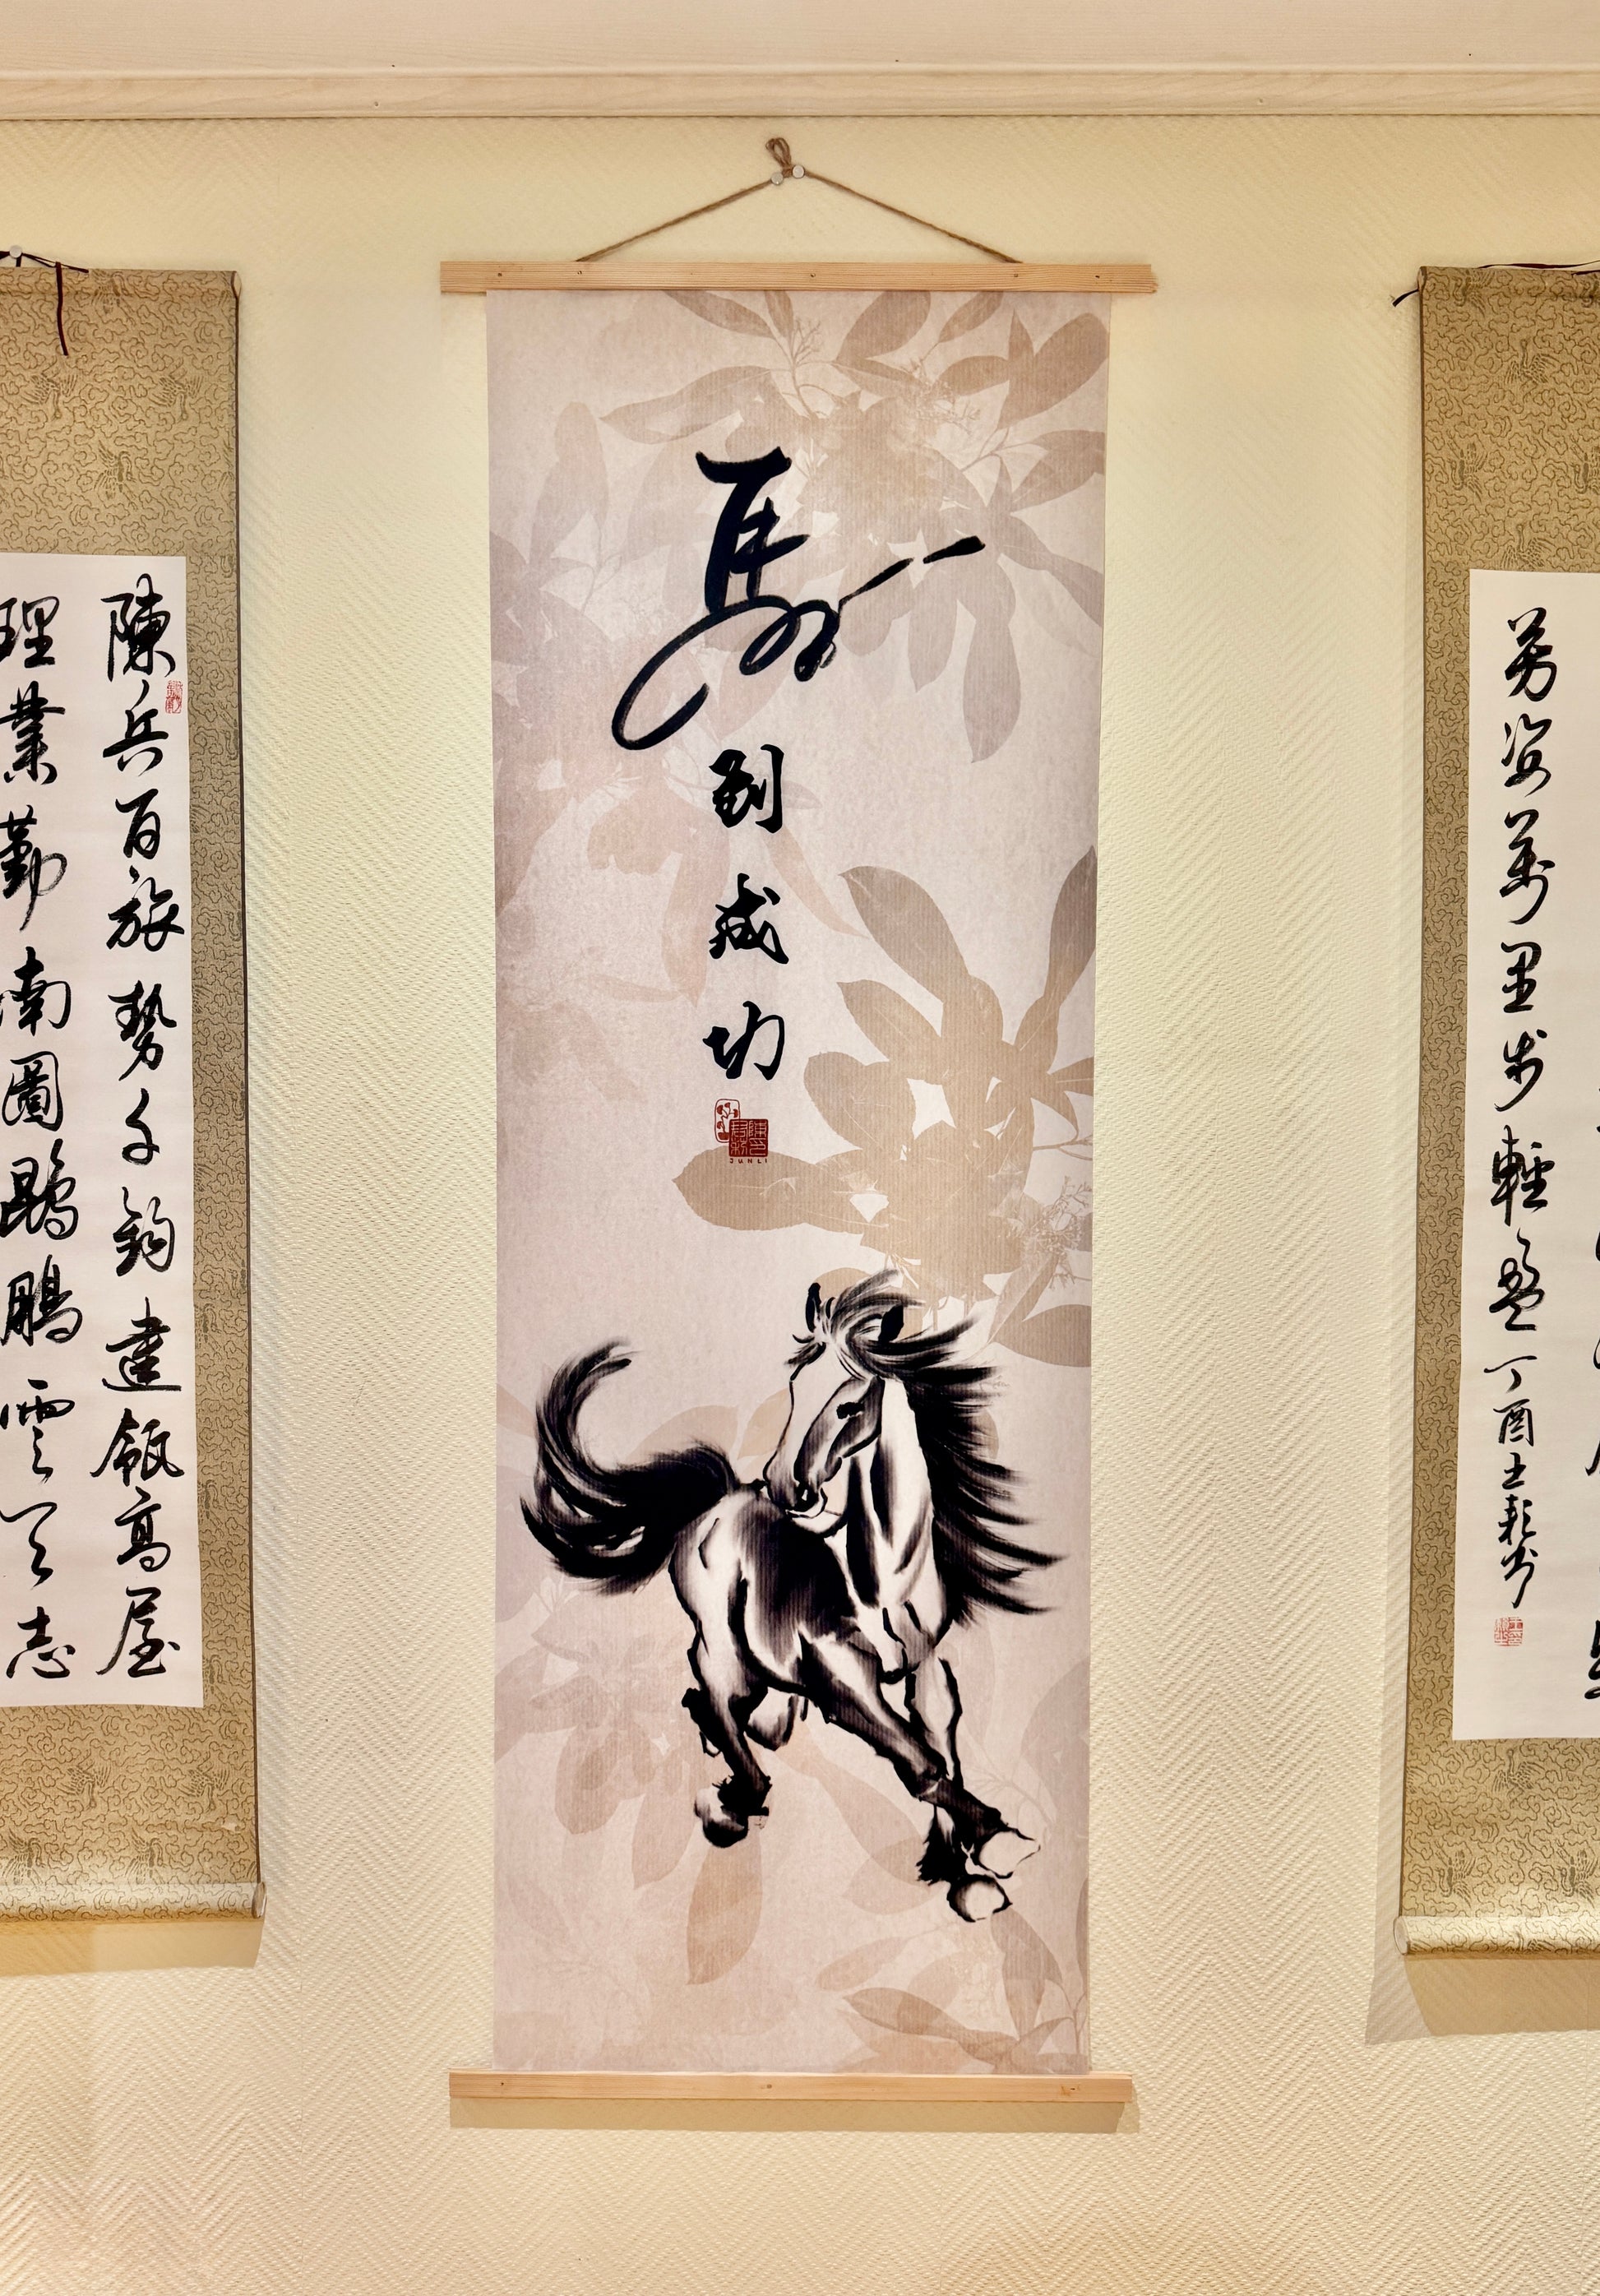 陳兵百旅勢千鈞建瓴高屋
理業勤南圖鵾鵬雲天志
馬到成功
JUNLI
芳姿萬里步輕盈丁酉土耘書